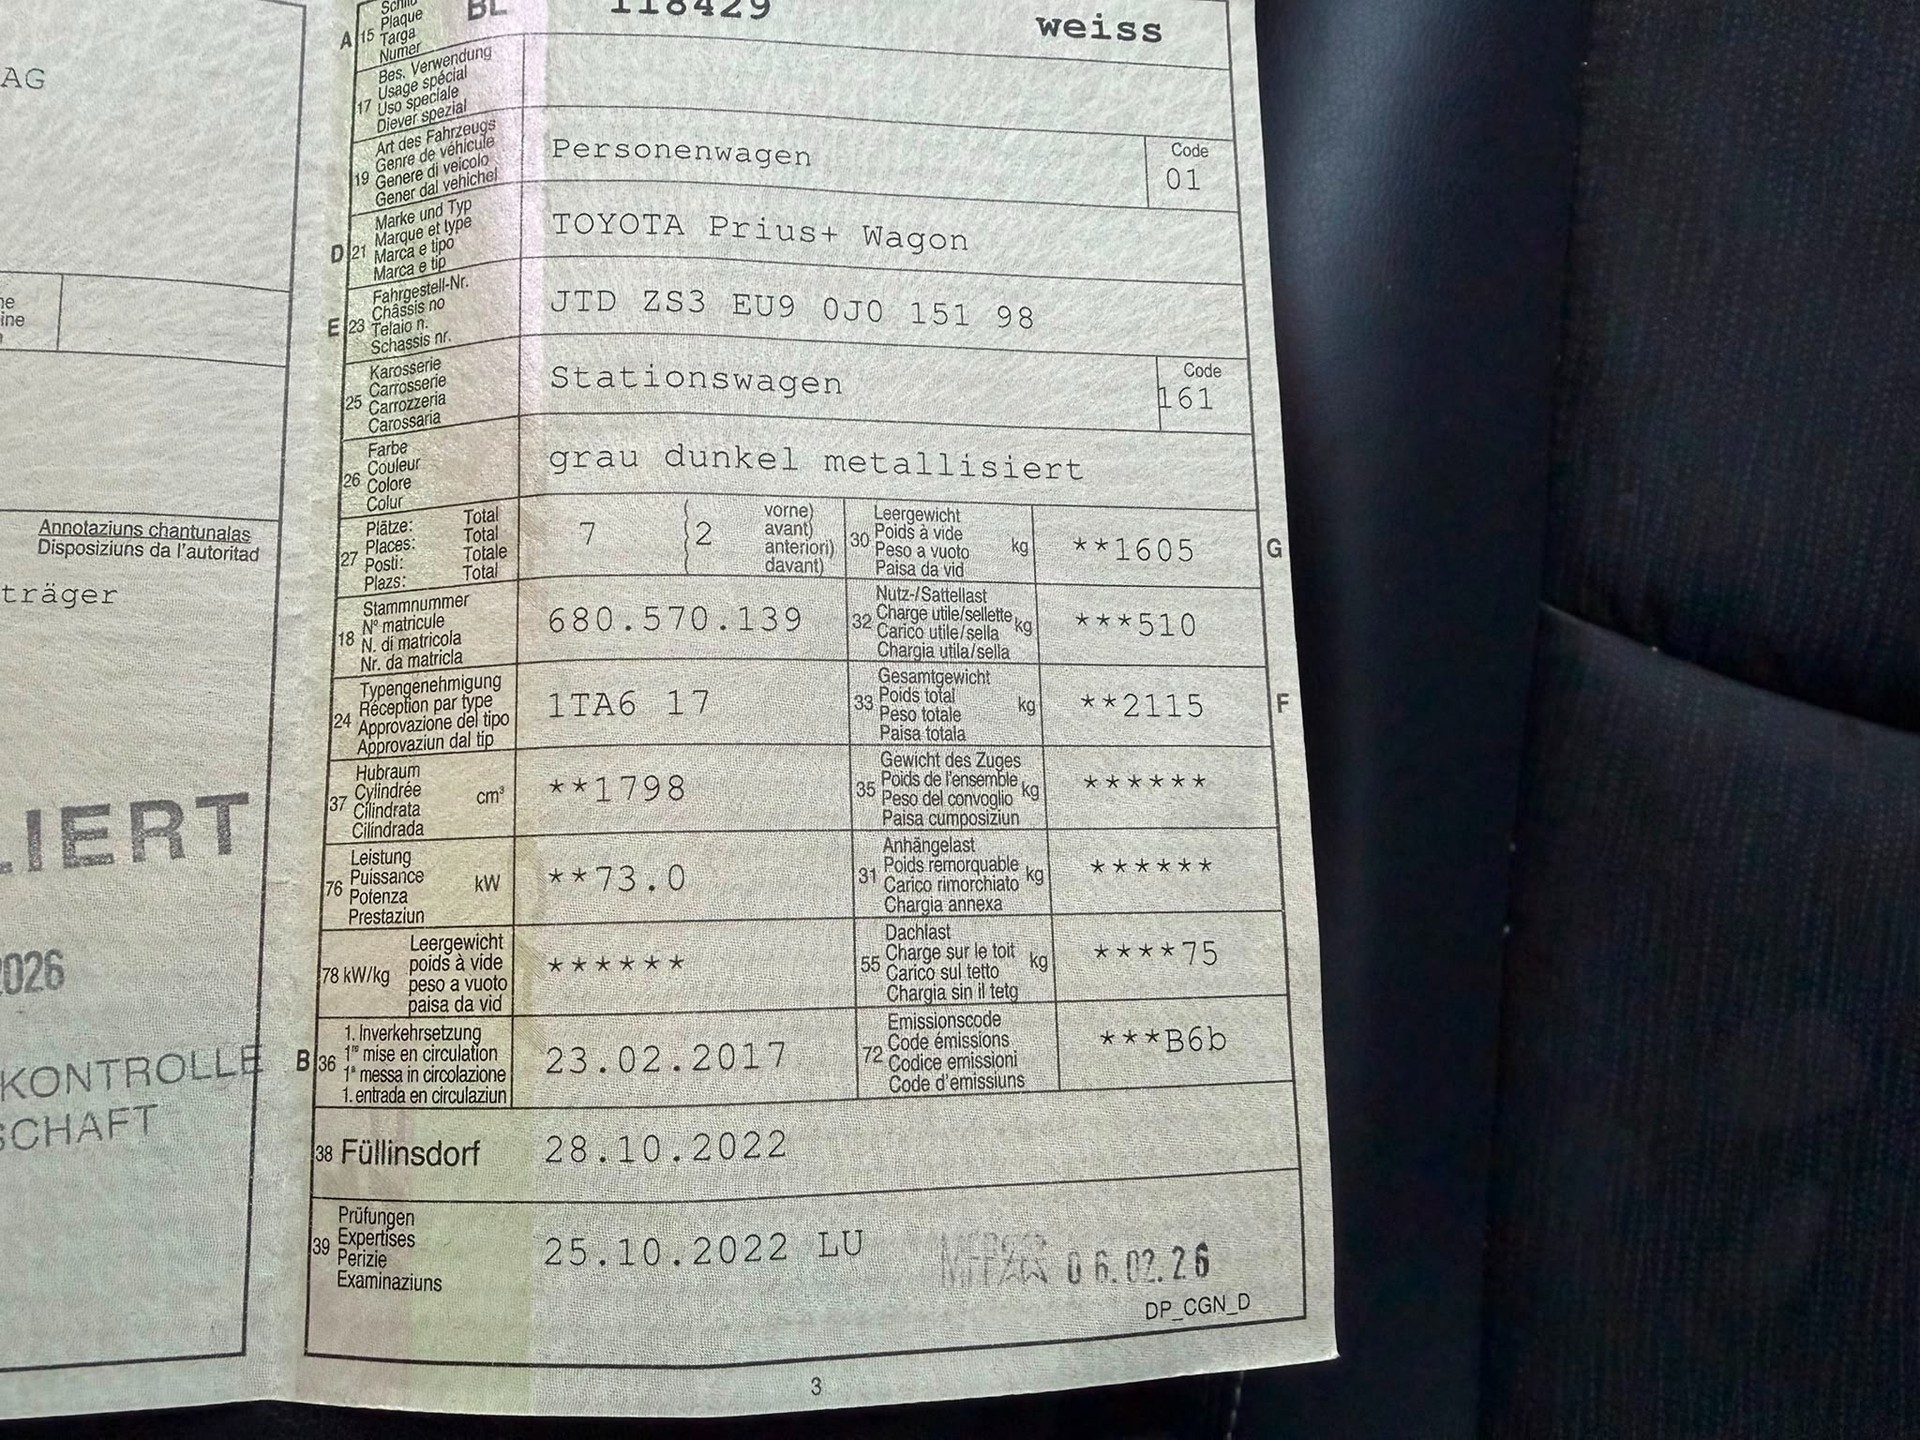 AG
ne
ine
Annotaziuns chantunalas
Disposiziuns da l'autoritad
träger
LIERT
2026
KONTROLLE
SCHAFT
A 15 Schild
Plaque
Targa
Numer
BL 118429 weiss
17 Bes. Verwendung
Usage spécial
Uso speciale
Diever spezial
19 Art des Fahrzeugs
Genre de véhicule
Genere di veicolo
Gener dal vehichel
Personenwagen
Code
01
D 21 Marke und Typ
Marque et type
Marca e tipo
Marca e tip
TOYOTA Prius+ Wagon
E 23 Fahrgestell-Nr.
Châssis no
Telaio n.
Schassis nr.
JTD ZS3 EU9 0J0 151 98
25 Karosserie
Carrosserie
Carrozzeria
Carossaria
Stationswagen
Code
161
26 Farbe
Couleur
Colore
Colur
grau dunkel metallisiert
27 Plätze: Total
Places: Total
Posti: Totale
Plazs: Total
7 2 vorne)
avant)
anteriori)
davant)
30 Leergewicht
Poids à vide
Peso a vuoto kg
Paisa da vid
**1605 G
18 Stammnummer
N° matricule
N. di matricola
Nr. da matricla
680.570.139
32 Nutz-/Sattellast
Charge utile/sellette kg
Carico utile/sella
Chargia utila/sella
***510
24 Typengenehmigung
Réception par type
Approvazione del tipo
Approvaziun dal tip
1TA6 17
33 Gesamtgewicht
Poids total kg
Peso totale
Paisa totala
**2115 F
37 Hubraum
Cylindrée cm³
Cilindrata
Cilindrada
**1798
35 Gewicht des Zuges
Poids de l'ensemble kg
Peso del convoglio
Paisa cumposiziun
******
76 Leistung
Puissance kW
Potenza
Prestaziun
**73.0
31 Anhängelast
Poids remorquable kg
Carico rimorchiato
Chargia annexa
******
78 kW/kg Leergewicht
poids à vide
peso a vuoto
paisa da vid
******
55 Dachlast
Charge sur le toit kg
Carico sul tetto
Chargia sin il tetg
****75
B 36 1. Inverkehrsetzung
1re mise en circulation
1a messa in circolazione
1. entrada en circulaziun
23.02.2017
72 Emissionscode
Code émissions
Codice emissioni
Code d'emissiuns
***B6b
38 Füllinsdorf 28.10.2022
39 Prüfungen
Expertises
Perizie
Examinaziuns
25.10.2022 LU 06.02.26
DP_CGN_D
3